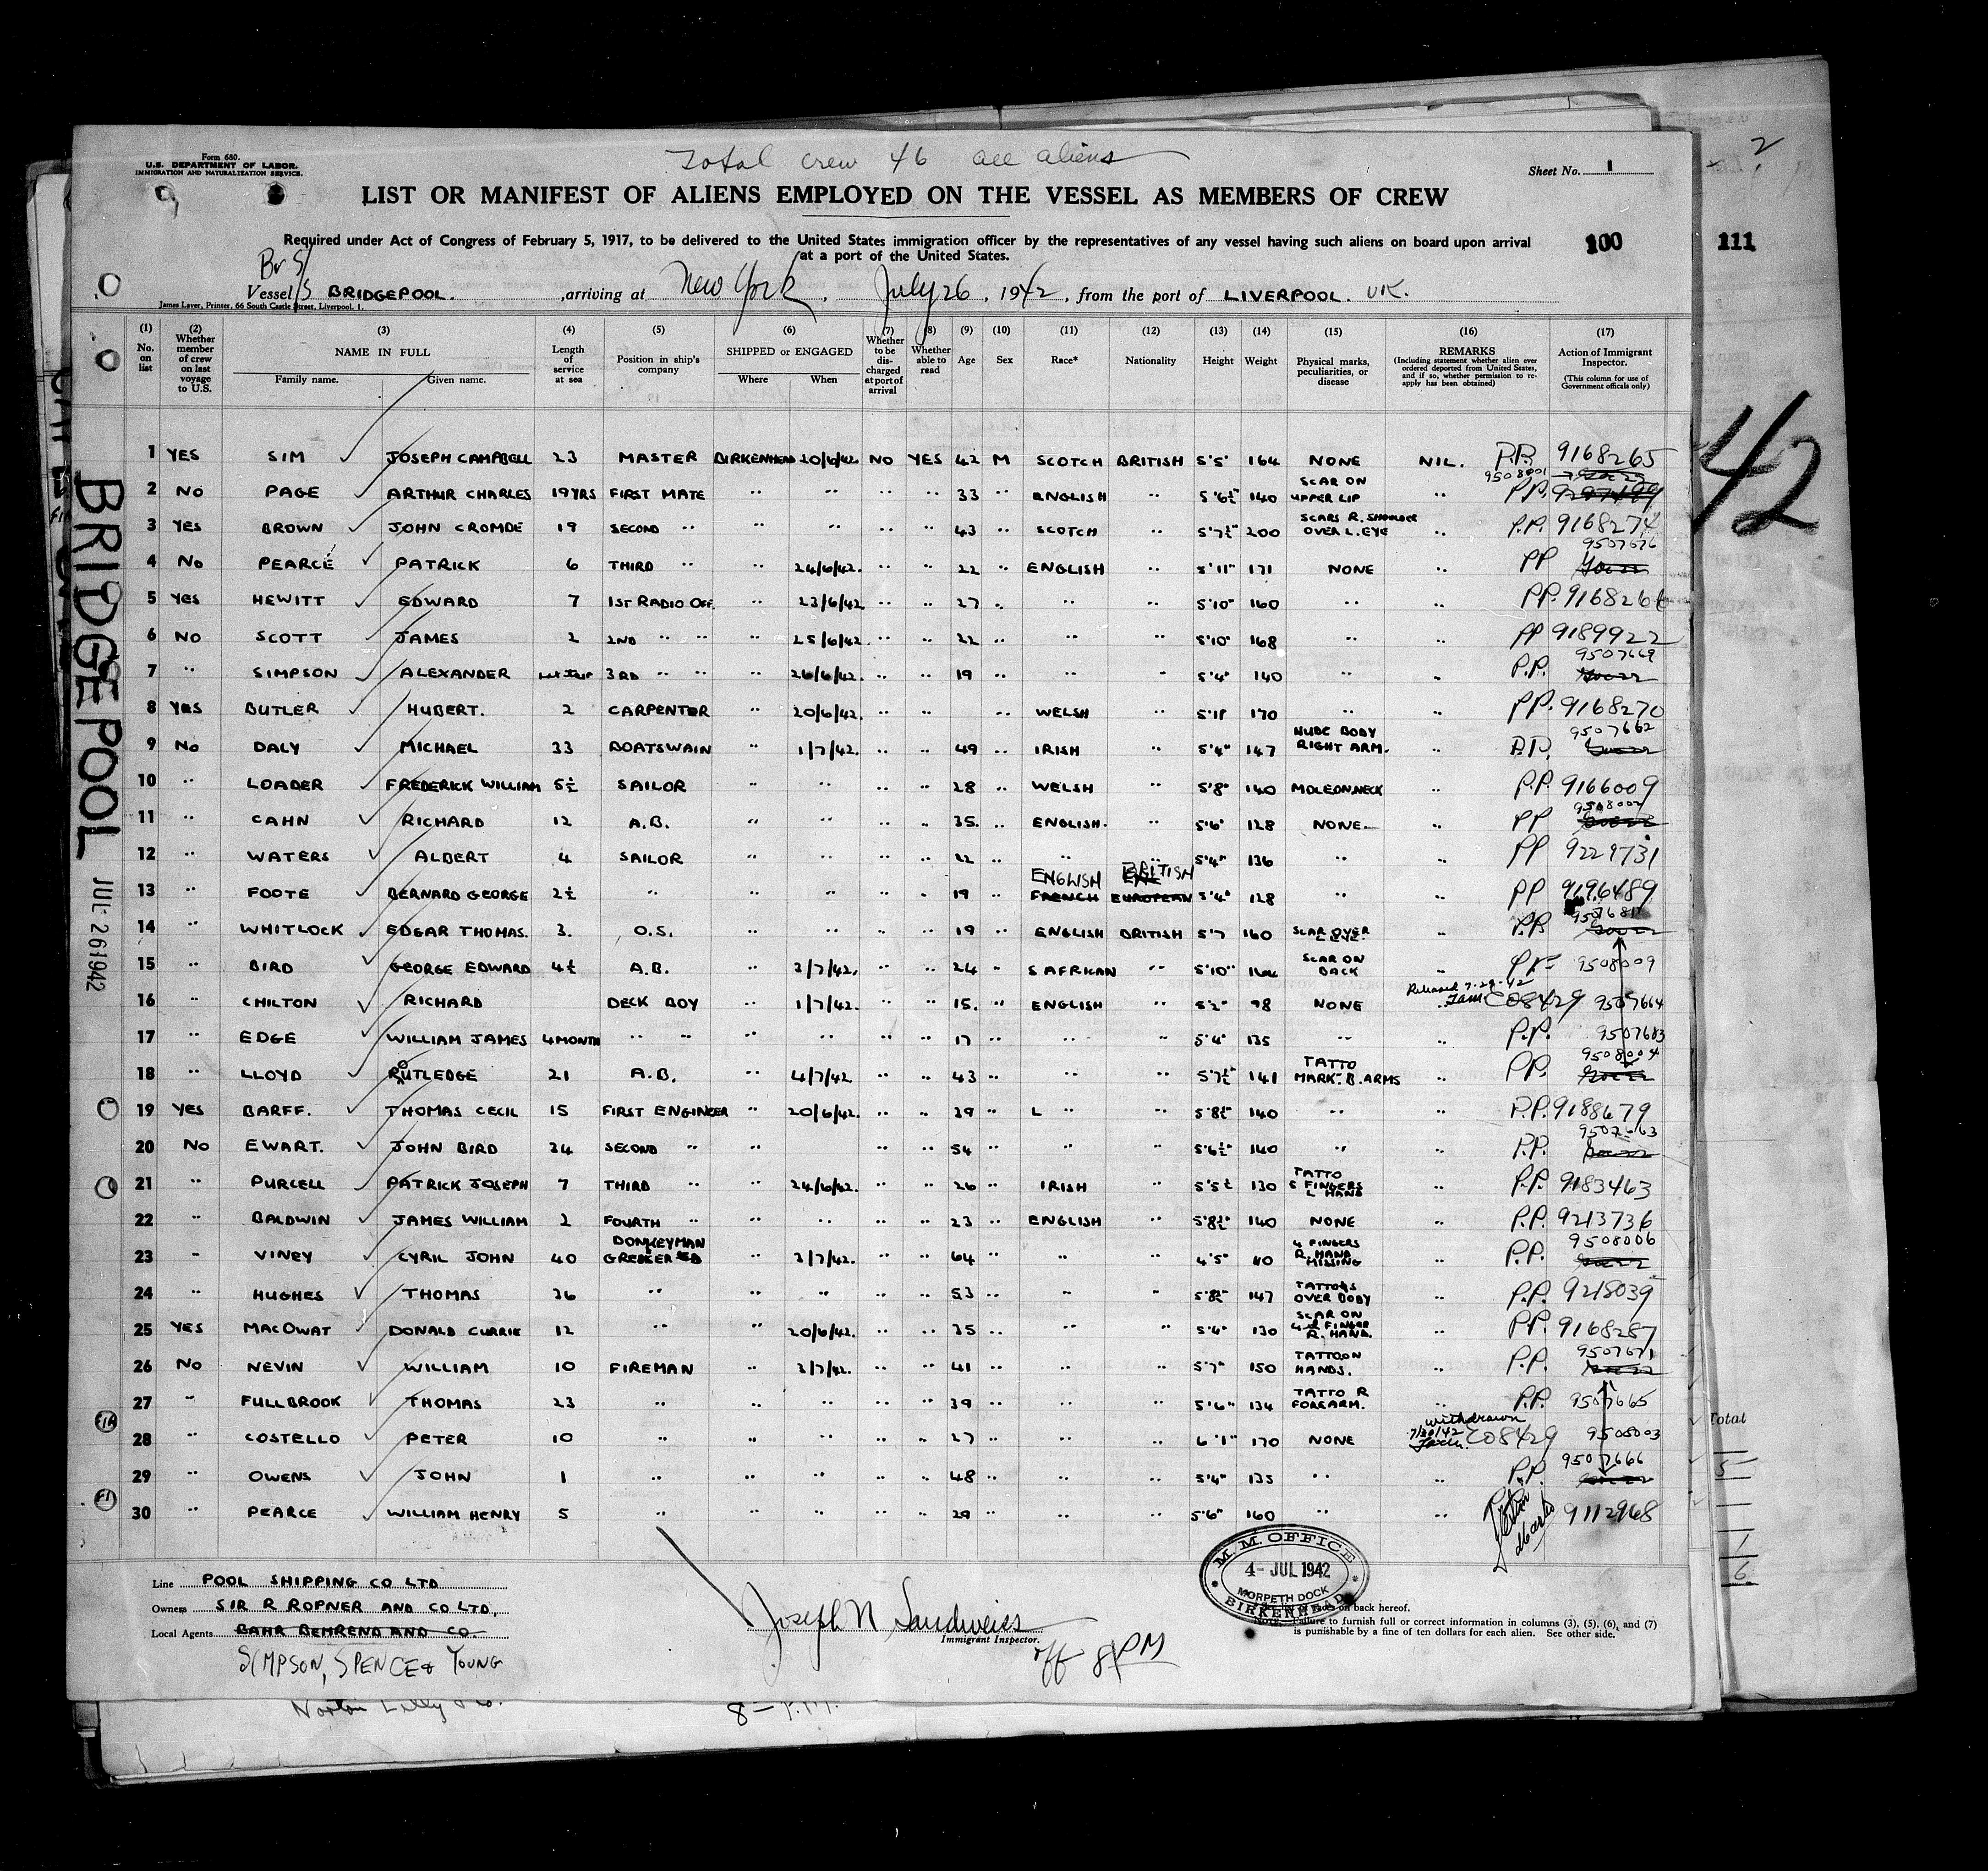 Total crew 46 all aliens
Form 680.
U.S. DEPARTMENT OF LABOR.
IMMIGRATION AND NATURALIZATION SERVICE.
Sheet No. 1
LIST OR MANIFEST OF ALIENS EMPLOYED ON THE VESSEL AS MEMBERS OF CREW
Required under Act of Congress of February 5, 1917, to be delivered to the United States immigration officer by the representatives of any vessel having such aliens on board upon arrival
at a port of the United States.
100
111
Br S/S
Vessel BRIDGEPOOL. ,arriving at New York, July 26, 1942, from the port of LIVERPOOL. UK.
James Laver, Printer, 66 South Castle Street, Liverpool. 1.
(1) No. on list
(2) Whether member of crew on last voyage to U.S.
(3) NAME IN FULL Family name. Given name.
(4) Length of service at sea
(5) Position in ship's company
(6) SHIPPED or ENGAGED Where When
(7) Whether to be discharged at port of arrival
(8) Whether able to read
(9) Age
(10) Sex
(11) Race*
(12) Nationality
(13) Height
(14) Weight
(15) Physical marks, peculiarities, or disease
(16) REMARKS (Including statement whether alien ever ordered deported from United States, and if so, whether permission to re-apply has been obtained)
(17) Action of Immigrant Inspector. (This column for use of Government officials only)
1 YES SIM JOSEPH CAMPBELL 23 MASTER BIRKENHEAD 20/6/42. NO YES 42 M SCOTCH BRITISH 5'5" 164 NONE NIL. P.P. 9168265
2 NO PAGE ARTHUR CHARLES 19YRS FIRST MATE " " " " 33 " ENGLISH " 5'6½" 140 SCAR ON UPPER LIP " 9508001 P.P.
3 YES BROWN JOHN CROMDE 19 SECOND " " " " " 43 " SCOTCH " 5'7½" 200 SCARS R. SHOULDER OVER L. EYE " P.P. 9168274
4 NO PEARCE PATRICK 6 THIRD " " 24/6/42. " " 22 " ENGLISH " 5'11" 171 NONE " PP 9507676
5 YES HEWITT EDWARD 7 1ST RADIO OFF. " 23/6/42. " " 27 " " " 5'10" 160 " " PP. 9168266
6 NO SCOTT JAMES 2 2ND " " " 25/6/42. " " 22 " " " 5'10" 168 " " PP 9189922
7 " SIMPSON ALEXANDER 1st trip 3RD " " " 26/6/42. " " 19 " " " 5'4" 140 " " P.P. 9507669
8 YES BUTLER HUBERT. 2 CARPENTER " 20/6/42. " " " WELSH " 5'11" 170 " " PP. 9168270
9 NO DALY MICHAEL 33 BOATSWAIN " 1/7/42. " " 49 " IRISH " 5'4" 147 NUDE BODY RIGHT ARM. " P.P. 9507662
10 " LOADER FREDERICK WILLIAM 5½ SAILOR " " " " 28 " WELSH " 5'8" 140 MOLE ON NECK " P.P. 9166009
11 " CAHN RICHARD 12 A.B. " " " " 35. " ENGLISH. " 5'6" 128 NONE. " PP 9508002
12 " WATERS ALBERT 4 SAILOR " " " " 22 " " " 5'4" 136 " " PP 9229731
13 " FOOTE BERNARD GEORGE 2½ " " " " " 19 " ENGLISH FRENCH BRITISH EUROPEAN 5'4" 128 " " PP 9196489
14 " WHITLOCK EDGAR THOMAS. 3. O.S. " " " " 19 " ENGLISH BRITISH 5'7 160 SCAR OVER L EYE. " P.P.
15 " BIRD GEORGE EDWARD 4½ A.B. " 2/7/42. " " 24 " S AFRICAN " 5'10" 164 SCAR ON BACK " PP 9508009
16 " CHILTON RICHARD DECK BOY " 1/7/42. " " 15. " ENGLISH " 5'2" 98 NONE Released 7-29-42 C08429 9507664
17 " EDGE WILLIAM JAMES 4 MONTH " " " " " " 17 " " " 5'4" 135 " " P.P. 9507683
18 " LLOYD RUTLEDGE 21 A.B. " 4/7/42 " " 43 " " " 5'7½" 141 TATTO MARK. B. ARMS " PP. 9508004
19 YES BARFF. THOMAS CECIL 15 FIRST ENGINEER " 20/6/42. " " 39 " L " " 5'8½" 140 " " P.P. 9188679
20 NO EWART. JOHN BIRD 34 SECOND " " " " " 54 " " " 5'6½" 140 " " P.P. 9507663
21 " PURCELL PATRICK JOSEPH 7 THIRD " " 24/6/42. " " 26 " IRISH " 5'5½ 130 TATTO 5 FINGERS L HAND " P.P. 9183463
22 " BALDWIN JAMES WILLIAM 2 FOURTH " " " " " 23 " ENGLISH " 5'8½" 140 NONE " P.P. 9213736
23 " VINEY CYRIL JOHN 40 DONKEYMAN GREASER " 2/7/42. " " 64 " " " 4'5" 110 4 FINGERS R. HAND MISSING " P.P. 9508006
24 " HUGHES THOMAS 36 " " " " " 53 " " " 5'8½" 147 TATTOOS OVER BODY " P.P. 9218039
25 YES MACOWAT DONALD CURRIE 12 " " 20/6/42. " " 35 " " " 5'6" 130 SCAR ON FINGER R. HAND. " P.P. 9168287
26 NO NEVIN WILLIAM 10 FIREMAN " 2/7/42. " " 41 " " " 5'7" 150 TATTO ON HANDS. " P.P. 9507671
27 " FULLBROOK THOMAS 23 " " " " " 39 " " " 5'6" 134 TATTO R FOREARM. " P.P. 9507665
28 " COSTELLO PETER 10 " " " " " 27 " " " 6'1" 170 NONE withdrawn 7/30/42 C08429 9508003
29 " OWENS JOHN 1 " " " " " 48 " " " 5'4" 135 " " P.P. 9507666
30 " PEARCE WILLIAM HENRY 5 " " " " " 29 " " " 5'6" 160 " " 9112968
BRIDGEPOOL JUL 26 1942
42
Total
Line POOL SHIPPING CO LTD
Owners SIR R ROPNER AND CO LTD.
Local Agents BAHR BEHREND AND CO.
SIMPSON, SPENCE & YOUNG
Joseph N Sandweiss
Immigrant Inspector.
off 8 PM
M.M. OFFICE
4- JUL 1942
MORPETH DOCK
BIRKENHEAD
on back hereof.
Note.—Failure to furnish full or correct information in columns (3), (5), (6), and (7)
is punishable by a fine of ten dollars for each alien. See other side.
Norton Lilly & Co.
8 - P.M.